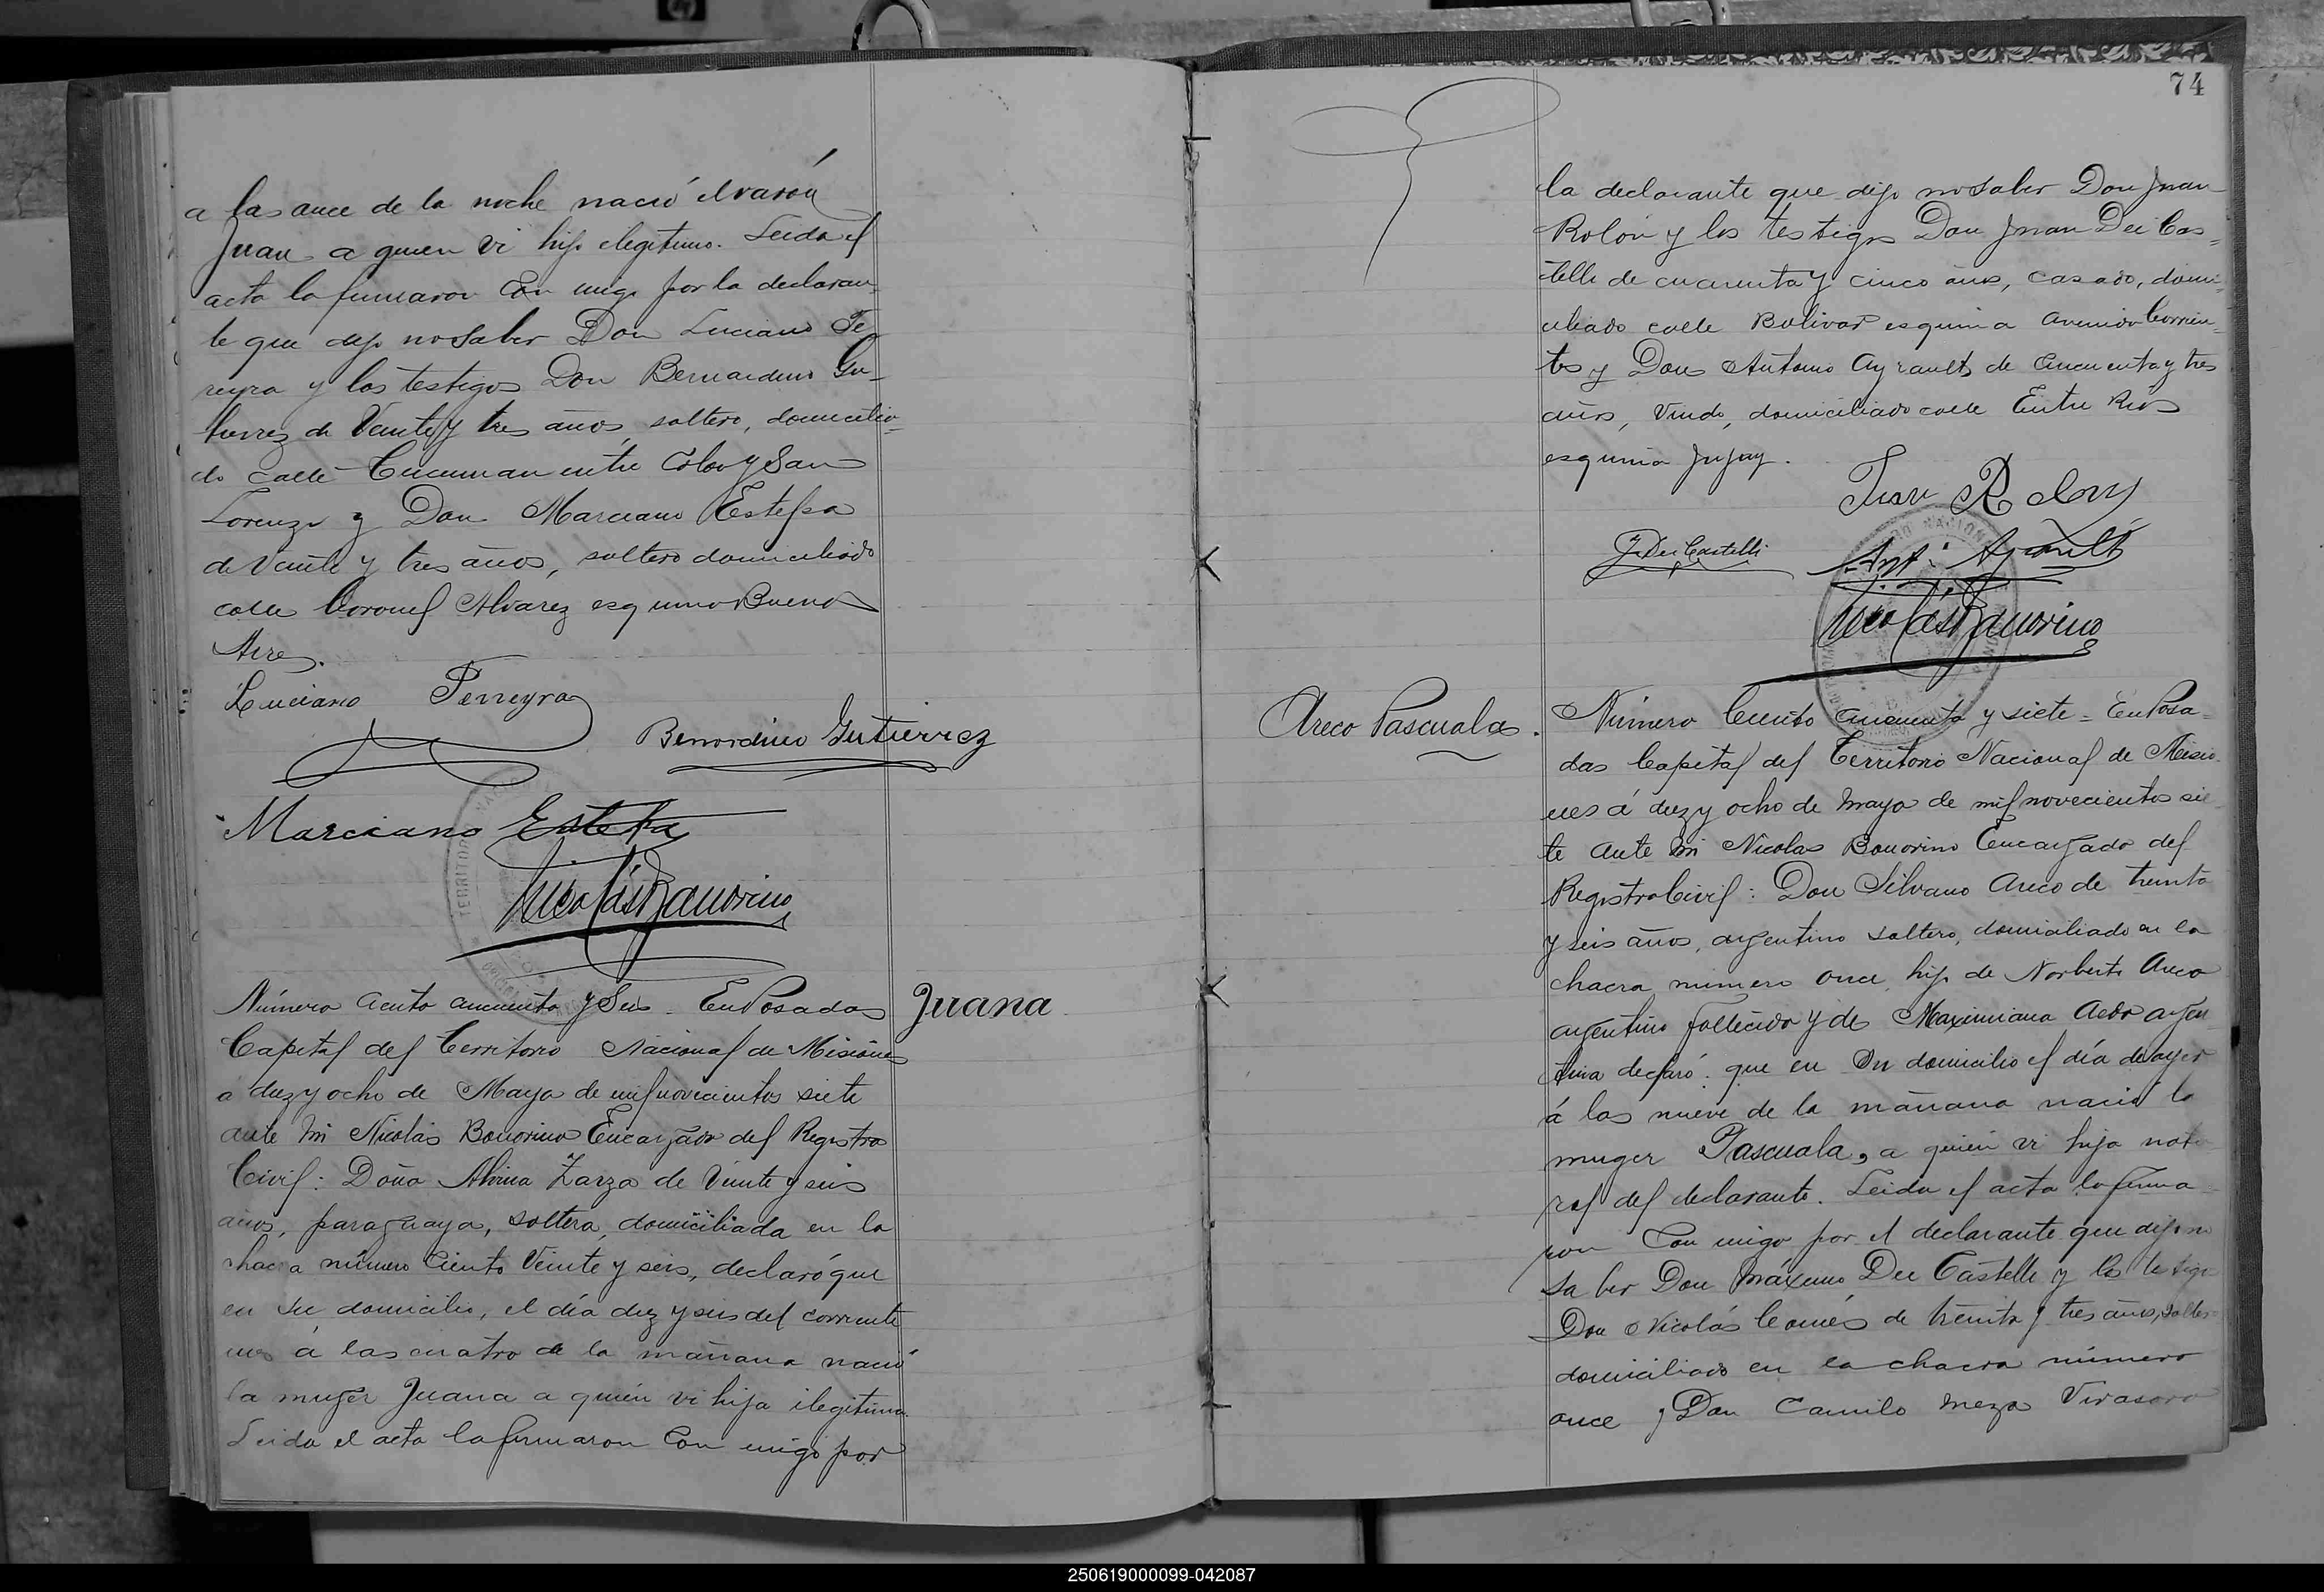 a las once de la noche nació el varón
Juan a quien vi hijo ilegitimo. Leida el
acta la firmaron con migo por la declaran-
te que dijo no saber Don Luciano Fe-
rreyra y los testigos Don Bernardino Gu-
tierrez de veinte y tres años, soltero, domicilia-
do calle Tucuman entre Colon y San
Lorenzo y Don Marciano Estefa
de veinte y tres años, soltero domiciliado
calle Coronel Alvarez esquina Buenos
Aires.
Luciano Ferreyra
Bernardino Gutierrez
Marciano Estefa
Nicolás Bonorino
Número ciento cincuenta y seis. En Posadas
Capital del Territorio Nacional de Misiones
á diez y ocho de Mayo de mil novecientos siete
ante mi Nicolás Bonorino Encargado del Registro
Civil: Doña Alvina Zarza de veinte y seis
años, paraguaya, soltera, domiciliada en la
chacra número ciento veinte y seis, declaró que
en su domicilio, el día diez y seis del corriente
mes á las cuatro de la mañana nació
la muger Juana a quien vi hija ilegitima.
Leida el acta la firmaron con migo por
Juana
74
la declarante que dijo no saber Don Juan
Rolón y los testigos Don Juan Dei Cas=
telli de cuarenta y cinco años, casado, domi=
ciliado calle Bolivar esquina avenida Corrien=
tes y Don Antonio Ayrault de cincuenta y tres
años, viudo, domiciliado calle Entre Rios
esquina Jujuy.
Juan Rolon
J. Dei Castelli
Ant. Ayrault
Nicolás Bonorino
Areco Pascuala.
Número ciento cincuenta y siete = En Posa=
das Capital del Territorio Nacional de Misio-
nes á diez y ocho de Mayo de mil novecientos sie-
te ante mi Nicolas Bonorino Encargado del
Registro Civil: Don Silvano Areco de treinta
y seis años, argentino soltero, domiciliado en la
chacra número once, hijo de Norberto Areco
argentino fallecido y de Maximiana argen
tina declaró: que en su domicilio el día de ayer
á las nueve de la mañana nació la
muger Pascuala, a quien vi hija natu
ral del declarante. Leida el acta la firma=
ron con migo por el declarante que dijo no
saber Don Máximo Dei Castelli y los testigos
Don Nicolás de treinta y tres años, soltero
domiciliado en la chacra número
once y Don Camilo Meza Virasoro
250619000099-042087